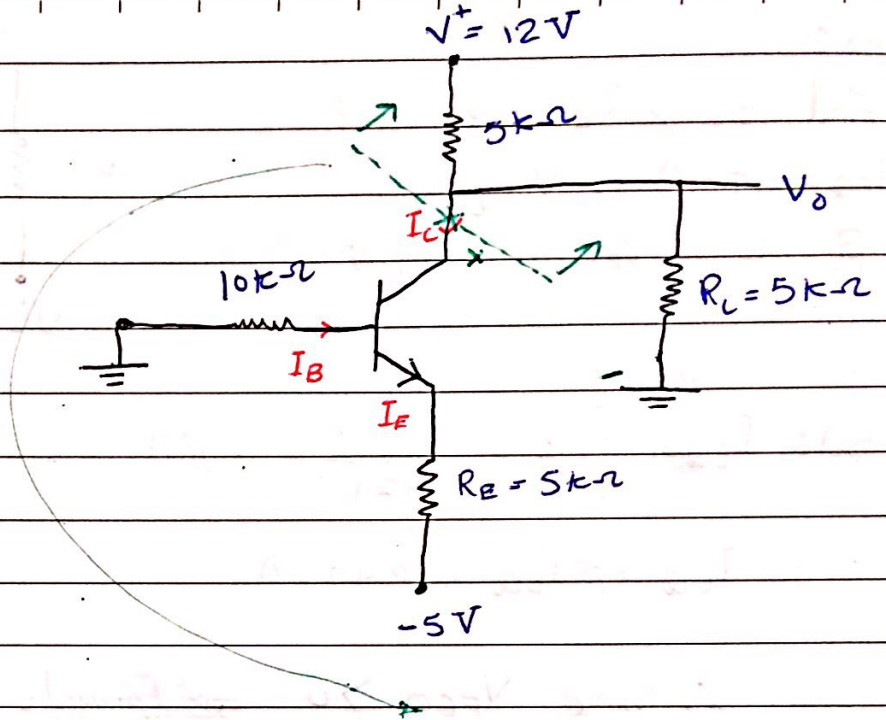 V⁺ = 12V
5kΩ
V₀
I_C
10kΩ
R_L = 5kΩ
I_B
I_E
R_E = 5kΩ
-5V